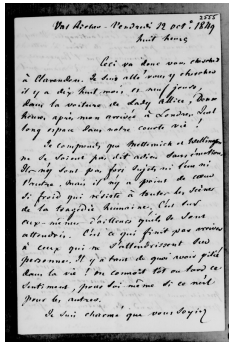 2555
Val Richer - Vendredi 12 oct. 1849
huit heures
Ceci va donc vous chercher
à Clarendon. Je suis allé vous y chercher
il y a dix huit mois et neuf jours,
dans la voiture de Lady Alice, deux
heures après mon arrivée à Londres. Quel
long espace dans notre courte vie !
Je comprends que Metternich et Wellington
ne se soient pas dit adieu sans émotion.
Ils n'y sont pas fort sujets ni l'un ni
l'autre. Mais il n'y a point de cœur
si froid qui résiste à toutes les scènes
de la tragédie humaine. C'est sur
eux-même d'ailleurs qu'ils se sont
attendris. C'est ce qui finit par arriver
à ceux qui ne s'attendrissent sur
personne. Il y a tant de quoi avoir pitié
dans la vie ! On connoît tôt ou tard ce
sentiment, pour soi même si ce n'est
pour les autres.
Je suis charmé que vous soyiez